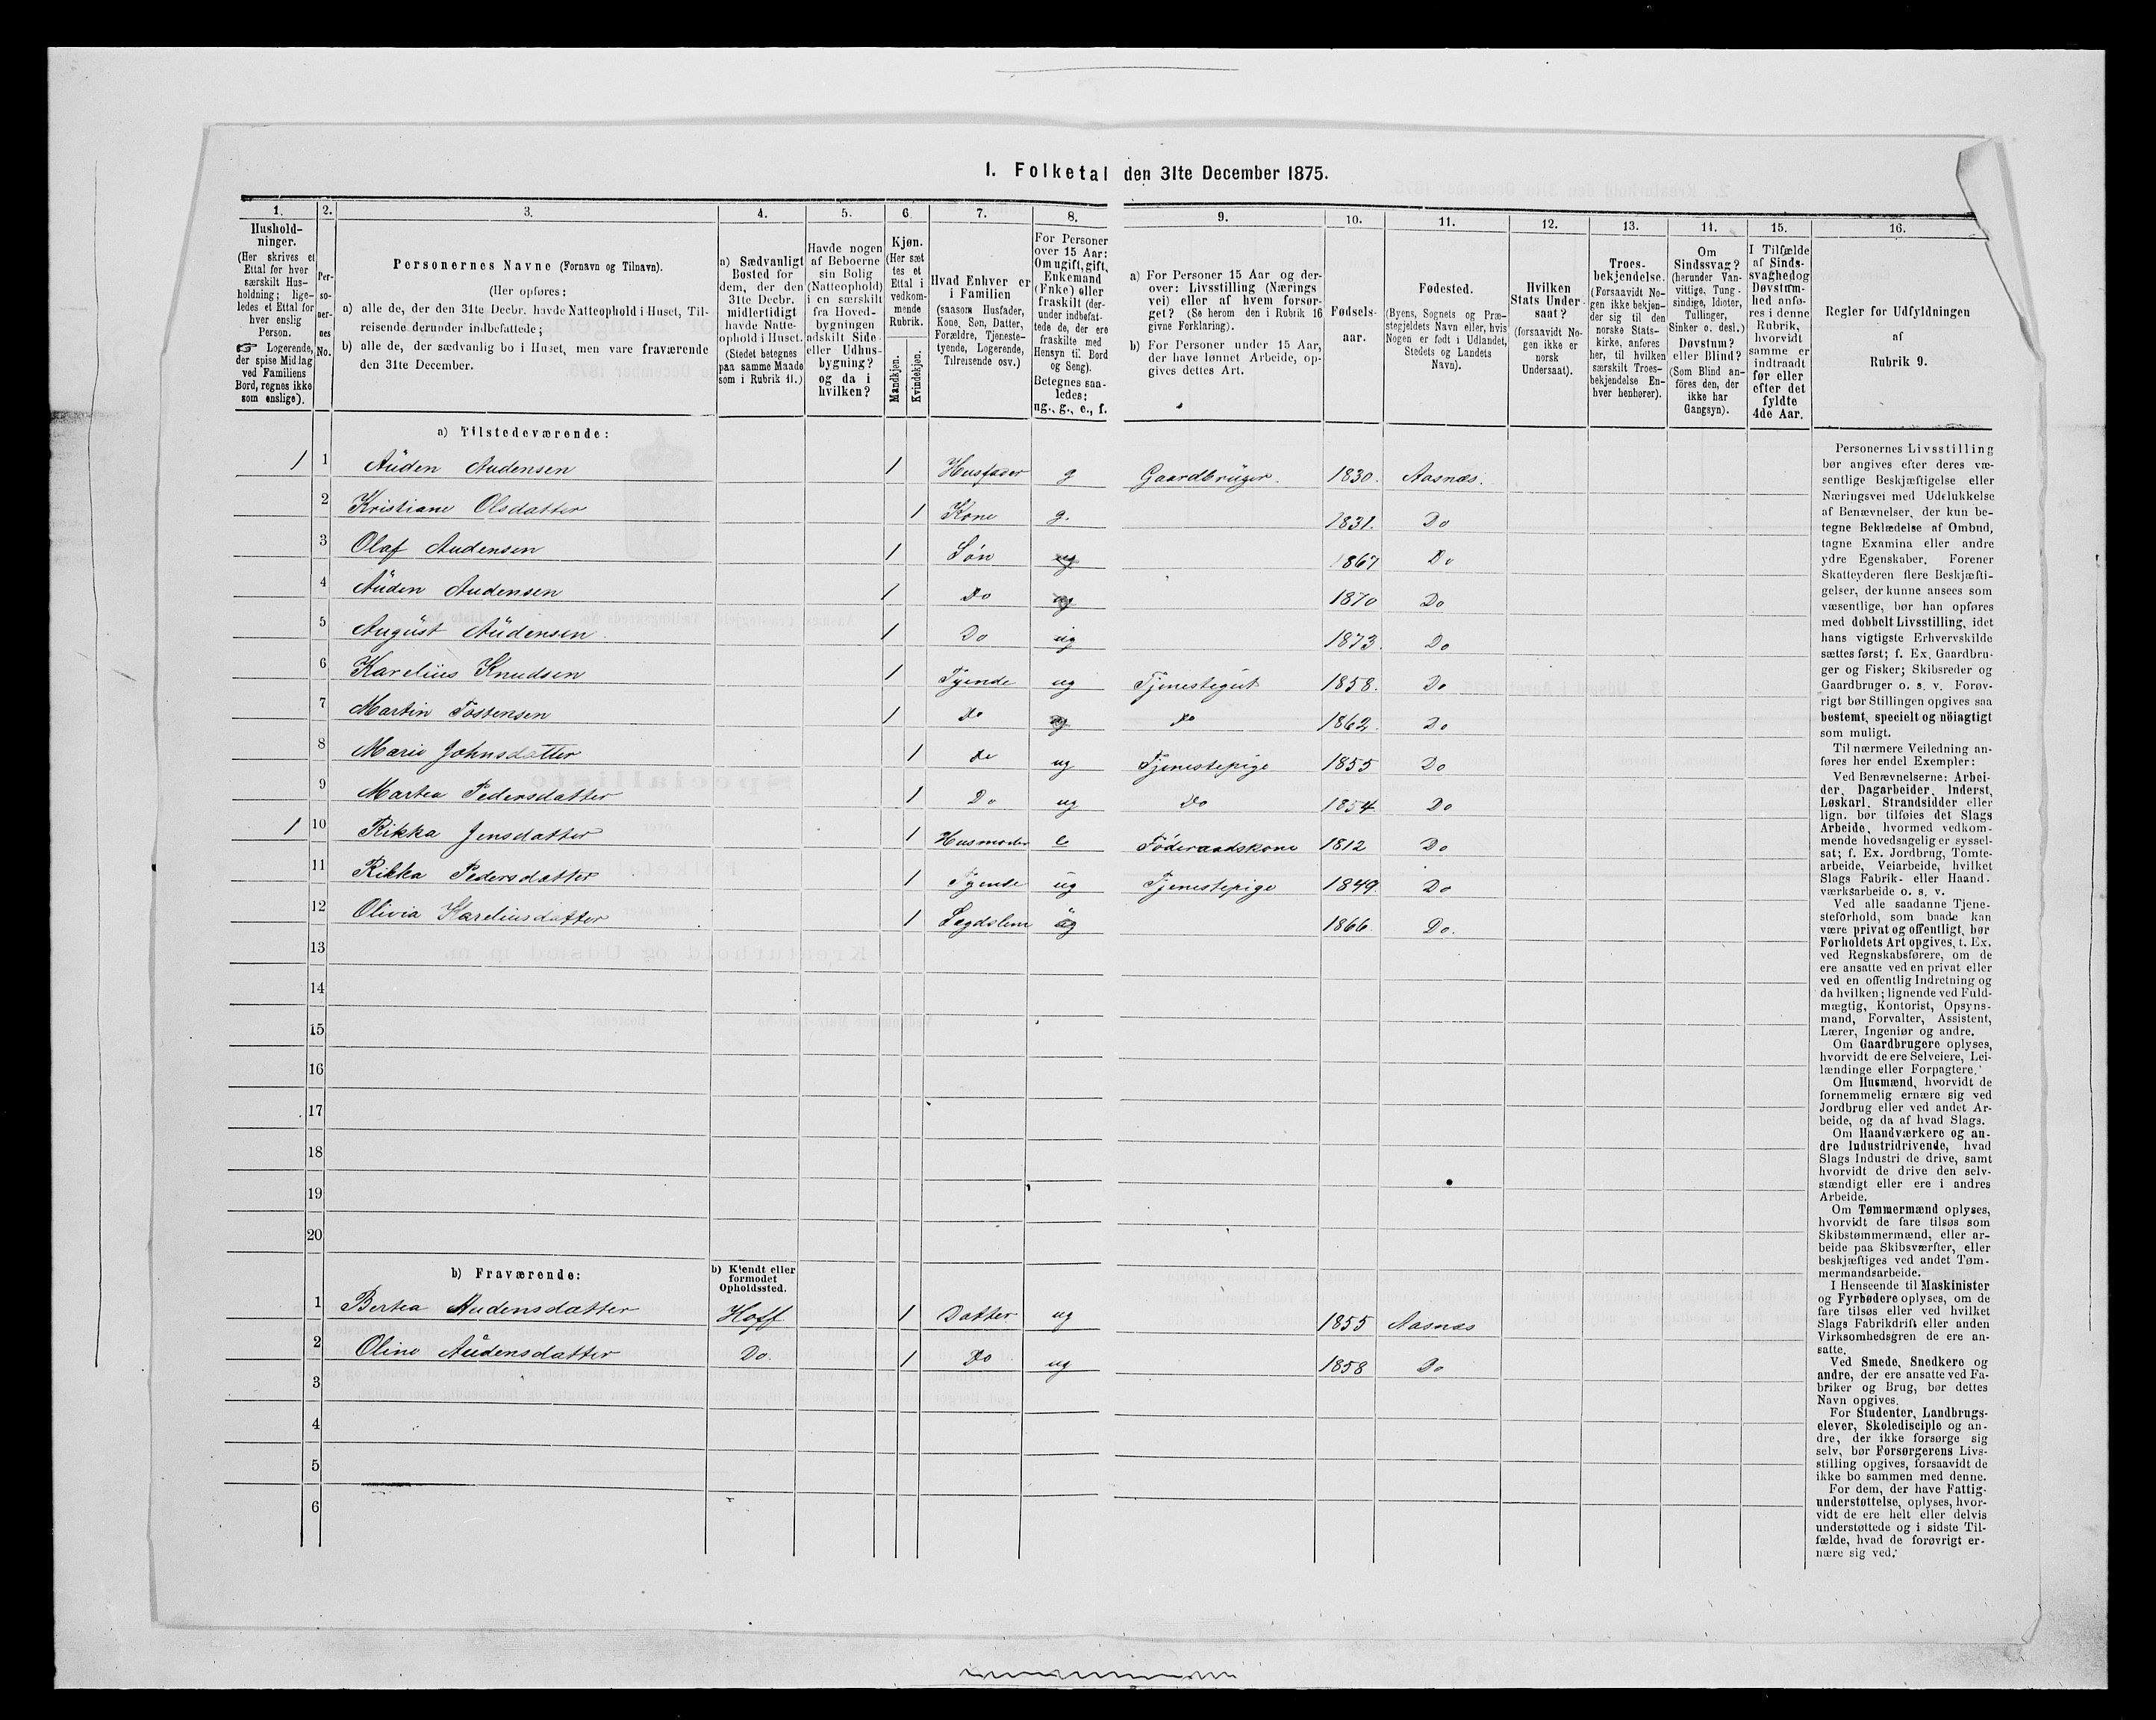 1. Folketal den 31te December 1875.
1. 2. 3. 4. 5. 6. 7. 8. 9. 10. 11. 12. 13. 14. 15. 16.
Hushold-
ninger.
(Her skrives et
Ettal for hver
særskilt Hus-
holdning; lige-
ledes et Ettal for
hver enslig
Person.
☞ Logerende,
der spise Middag
ved Familiens
Bord, regnes ikke
som enslige).
Per-
so-
ner-
nes
No.
Personernes Navne (Fornavn og Tilnavn).
(Her opføres:
a) alle de, der den 31te Decbr. havde Natteophold i Huset, Til-
reisende derunder indbefattede;
b) alle de, der sædvanlig bo i Huset, men vare fraværende
den 31te December.
a) Sædvanligt
Bosted for
dem, der den
31te Decbr.
midlertidigt
havde Natte-
ophold i Huset.
(Stedet betegnes
paa samme Maade
som i Rubrik 11.)
Havde nogen
af Beboerne
sin Bolig
(Natteophold)
i en særskilt
fra Hoved-
bygningen
adskilt Side-
eller Udhus-
bygning?
og da i
hvilken?
Kjøn.
(Her sæt-
tes et
Ettal i
vedkom-
mende
Rubrik.
Mandkjøn.
Kvindekjøn.
Hvad Enhver er
i Familien
(saasom Husfader,
Kone, Søn, Datter,
Forældre, Tjeneste-
tyende, Logerende,
Tilreisende osv.)
For Personer
over 15 Aar:
Om ugift, gift,
Enkemand
(Enke) eller
fraskilt (der-
under indbefat-
tede de, der ere
fraskilte med
Hensyn til Bord
og Seng).
Betegnes saa-
ledes:
ug., g., e., f.
a) For Personer 15 Aar og der-
over: Livsstilling (Nærings-
vei) eller af hvem forsør-
get? (Se herom den i Rubrik 16
givne Forklaring).
b) For Personer under 15 Aar,
der have lønnet Arbeide, op-
gives dettes Art.
Fødsels-
aar.
Fødested.
(Byens, Sognets og Præ-
stegjeldets Navn eller, hvis
Nogen er født i Udlandet,
Stedets og Landets
Navn).
Hvilken
Stats Under-
saat?
(forsaavidt No-
gen ikke er
norsk
Undersaat).
Troes-
bekjendelse.
(Forsaavidt No-
gen ikke bekjen-
der sig til den
norske Stats-
kirke, anføres
her, til hvilken
særskilt Troes-
bekjendelse En-
hver henhører).
Om
Sindssvag?
(herunder Van-
vittige, Tung-
sindige, Idioter,
Tullinger,
Sinker o. desl.)
Døvstum?
eller Blind?
(Som Blind an-
föres den, der
ikke har
Gangsyn).
I Tilfælde
af Sinds-
svaghed og
Døvstum-
hed anfø-
res i denne
Rubrik,
hvorvidt
samme er
indtraadt
før eller
efter det
fyldte
4de Aar.
Regler for Udfyldningen
af
Rubrik 9.
a) Tilstedeværende:
1 1 Auden Audensen 1 Husfader g Gaardbruger. 1830. Aasnæs.
2 Kristiane Olsdatter 1 Kone g. 1831. Do
3 Olaf Audensen 1 Søn ug 1867 Do
4 Auden Audensen 1 Do ug 1870 Do
5 August Audensen. 1 Do ug 1873. Do
6 Karelius Knudsen 1 Tyende ug Tjenestegut 1858. Do
7 Martin Tostensen 1 Do ug Do 1862. Do
8 Marie Johnsdatter 1 Do ug Tjenestepige 1855 Do
9 Martea Pedersdatter 1 Do ug Do 1854. Do
1 10 Rikka Jensdatter 1 Husmoder e Föderaadskone 1812 Do
11 Rikka Pedersdatter 1 Tyende ug Tjenestepige 1849. Do
12 Olivia Kareliusdatter 1 Lægdslem ug 1866. Do.
13
14
15
16
17
18
19
20
b) Fraværende:
b) Kjendt eller
formodet
Opholdssted.
1 Bertea Audensdatter Hoff 1 Datter ug 1855 Aasnæs
2 Oline Audensdatter Do. 1 Do ug 1858 Do
3
4
5
6
Personernes Livsstilling
bør angives efter deres væ-
sentlige Beskjæftigelse eller
Næringsvei med Udelukkelse
af Benævnelser, der kun be-
tegne Beklædelse af Ombud,
tagne Examina eller andre
ydre Egenskaber. Forener
Skatteyderen flere Beskjæfti-
gelser, der kunne ansees som
væsentlige, bør han opføres
med dobbelt Livsstilling, idet
hans vigtigste Erhvervskilde
sættes først; f. Ex. Gaardbru-
ger og Fisker; Skibsreder og
Gaardbruger o. s. v. Forøv-
rigt bør Stillingen opgives saa
bestemt, specielt og nöiagtigt
som muligt.
Til nærmere Veiledning an-
føres her endel Exempler:
Ved Benævnelserne: Arbei-
der, Dagarbeider, Inderst,
Løskarl, Strandsidder eller
lign. bør tilføies det Slags
Arbeide, hvormed vedkom-
mende hovedsagelig er syssel-
sat; f. Ex. Jordbrug, Tomte-
arbeide, Veiarbeide, hvilket
Slags Fabrik- eller Haand-
værksarbeide o. s. v.
Ved alle saadanne Tjene-
steforhold, som baade kan
være privat og offentligt, bør
Forholdets Art opgives, t. Ex.
ved Regnskabsførere, om de
ere ansatte ved en privat eller
ved en offentlig Indretning og
da hvilken; lignende ved Fuld-
mægtig, Kontorist, Opsyns-
mand, Forvalter, Assistent,
Lærer, Ingeniør og andre.
Om Gaardbrugere oplyses,
hvorvidt de ere Selveiere, Lei-
lændinge eller Forpagtere.
Om Husmænd, hvorvidt de
fornemmelig ernære sig ved
Jordbrug eller ved andet Ar-
beide, og da af hvad Slags.
Om Haandværkere og an-
dre Industridrivende, hvad
Slags Industri de drive, samt
hvorvidt de drive den selv-
stændigt eller ere i andres
Arbeide.
Om Tømmermænd oplyses,
hvorvidt de fare tilsøs som
Skibstømmermænd, eller ar-
beide paa Skibsværfter, eller
beskjæftiges ved andet Tøm-
mermandsarbeide.
I Henseende til Maskinister
og Fyrbødere oplyses, om de
fare tilsøs eller ved hvilket
Slags Fabrikdrift eller anden
Virksomhedsgren de ere an-
satte.
Ved Smede, Snedkere og
andre, der ere ansatte ved Fa-
briker og Brug, bør dettes
Navn opgives.
For Studenter, Landbrugs-
elever, Skoledisciple og an-
dre, der ikke forsørge sig
selv, bør Forsørgerens Livs-
stilling opgives, forsaavidt de
ikke bo sammen med denne.
For dem, der have Fattig-
understøttelse, oplyses, hvor-
vidt de ere helt eller delvis
understøttede og i sidste Til-
fælde, hvad de forøvrigt er-
nære sig ved.